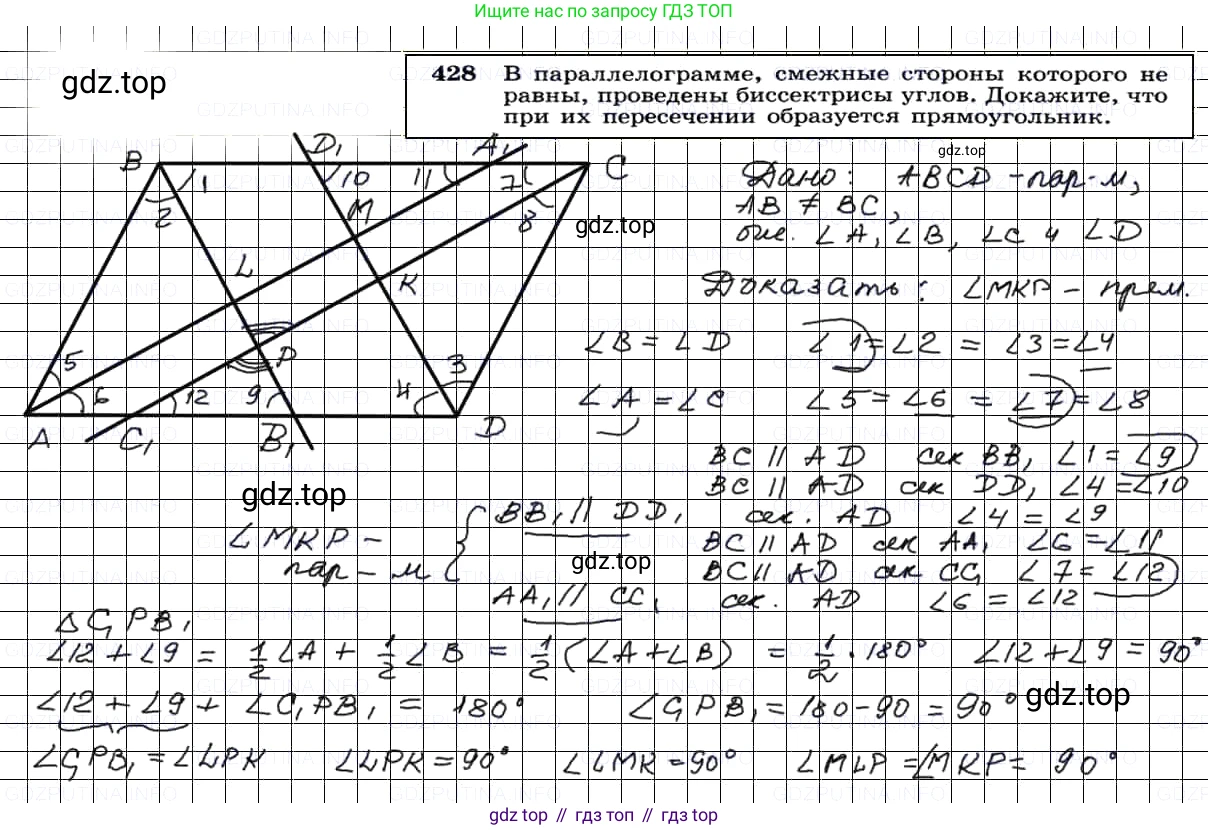 Ищите нас по запросу ГДЗ ТОП
GDZPUTINA.INFO
gdz.top
428 В параллелограмме, смежные стороны которого не
равны, проведены биссектрисы углов. Докажите, что
при их пересечении образуется прямоугольник.
gdz.top
B D₁ A₁ C
1 10 11 7
2 M 8
L K
5 P 3
6 12 9 4
A C₁ B₁ D
gdz.top
Дано: ABCD - пар-м,
AB ≠ BC,
бис. ∠A, ∠B, ∠C и ∠D
Доказать: ∠MKP - прям.
∠B = ∠D ∠1 = ∠2 = ∠3 = ∠4
∠A = ∠C ∠5 = ∠6 = ∠7 = ∠8
BC || AD сек BB₁ ∠1 = ∠9
BC || AD сек DD₁ ∠4 = ∠10
gdz.top
∠MKP -
пар-м
BB₁ || DD₁ сек. AD ∠4 = ∠9
BC || AD сек AA₁ ∠6 = ∠11
gdz.top
BC || AD сек CC₁ ∠7 = ∠12
AA₁ || CC₁ сек. AD ∠6 = ∠12
△C₁PB₁
∠12 + ∠9 = 1/2 ∠A + 1/2 ∠B = 1/2 (∠A + ∠B) = 1/2 · 180° ∠12 + ∠9 = 90°
∠12 + ∠9 + ∠C₁PB₁ = 180° ∠C₁PB₁ = 180 - 90 = 90°
gdz.top
∠C₁PB₁ = ∠LPK ∠LPK = 90° ∠LMK = 90° ∠MLP = ∠MKP = 90°
gdz.top // гдз топ // gdz top